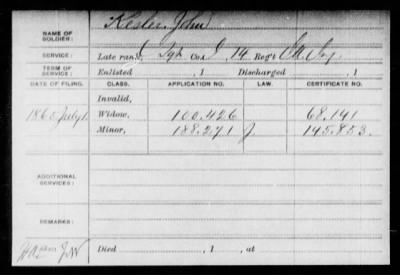 NAME OF SOLDIER: Kesler John
SERVICE: Late rank, Co. 14 Reg't Cav.
TERM OF SERVICE: Enlisted , 1 Discharged , 1
DATE OF FILING. CLASS. APPLICATION NO. LAW. CERTIFICATE NO.
Invalid,
186 July 1 Widow, 100,426 68,141
Minor, 188,271 J. 145,853.
ADDITIONAL SERVICES:
REMARKS:
Died , 1 , at